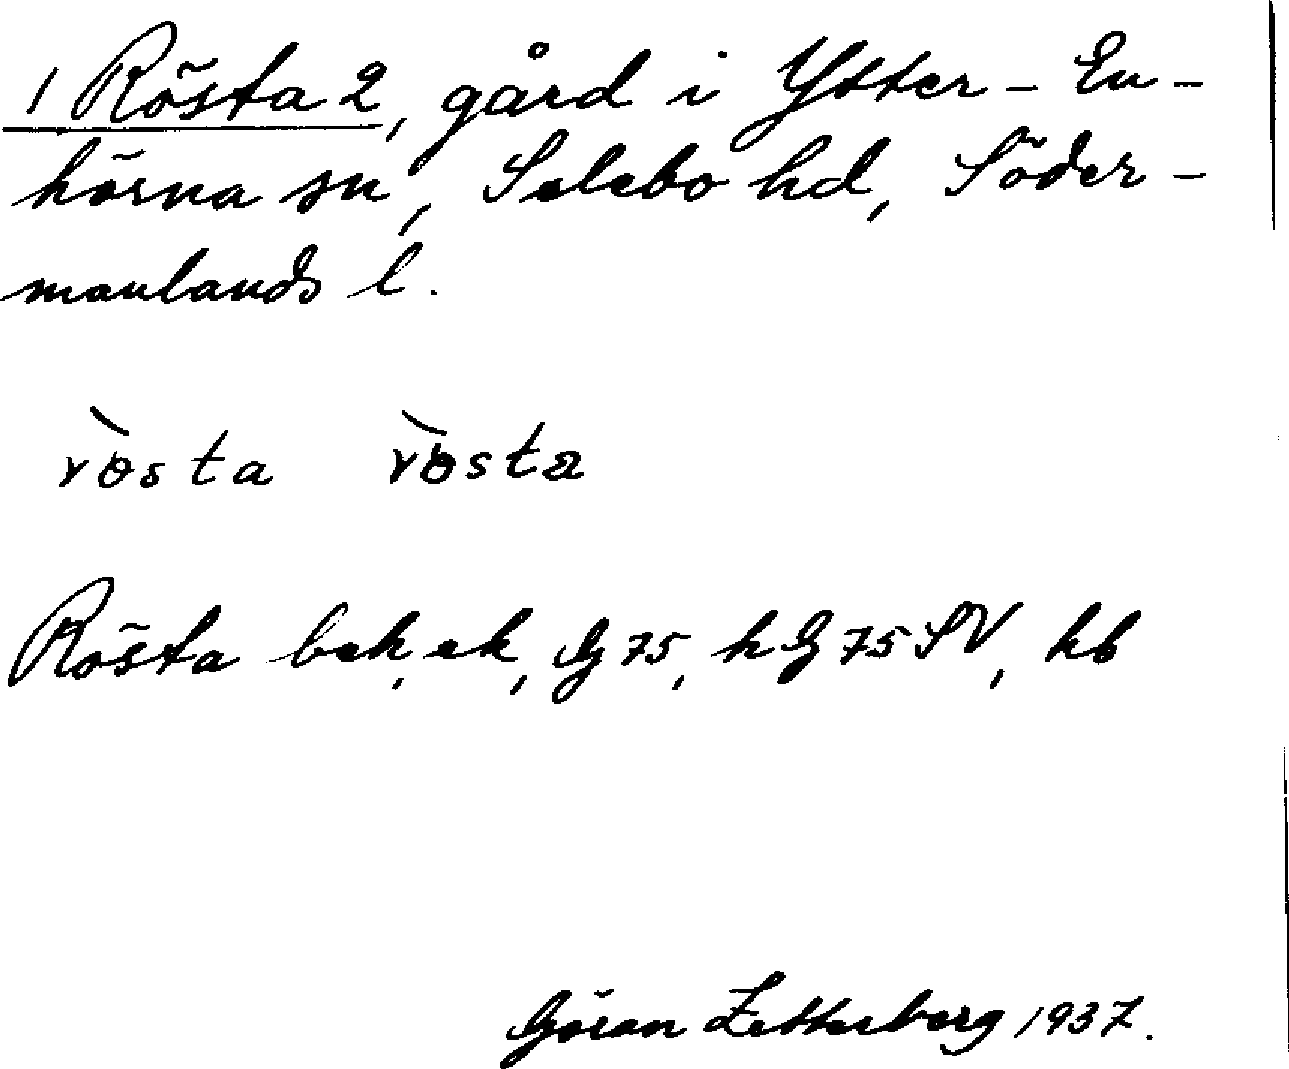 1 Rösta 2, gård i Ytter-En-
hörna sn, Selebo hd, Söder-
manlands l.
Rösta bek, ek, G 75, h G 75 SV, hb
Göran Zetterberg 1937.